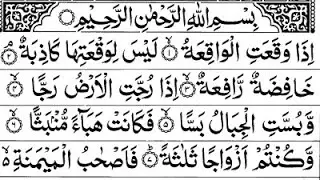 بِسْمِ اللّٰهِ الرَّحْمٰنِ الرَّحِيْمِ
اِذَا وَقَعَتِ الْوَاقِعَةُ ۙ﴿۱﴾ لَيْسَ لِوَقْعَتِهَا كَاذِبَةٌ ۘ﴿۲﴾
خَافِضَةٌ رَّافِعَةٌ ۙ﴿۳﴾ اِذَا رُجَّتِ الْاَرْضُ رَجًّا ۙ﴿۴﴾
وَّبُسَّتِ الْجِبَالُ بَسًّا ۙ﴿۵﴾ فَكَانَتْ هَبَآءً مُّنْۢبَثًّا ۙ﴿۶﴾
وَّكُنْتُمْ اَزْوَاجًا ثَلٰثَةً ؕ﴿۷﴾ فَاَصْحٰبُ الْمَيْمَنَةِ ۙ